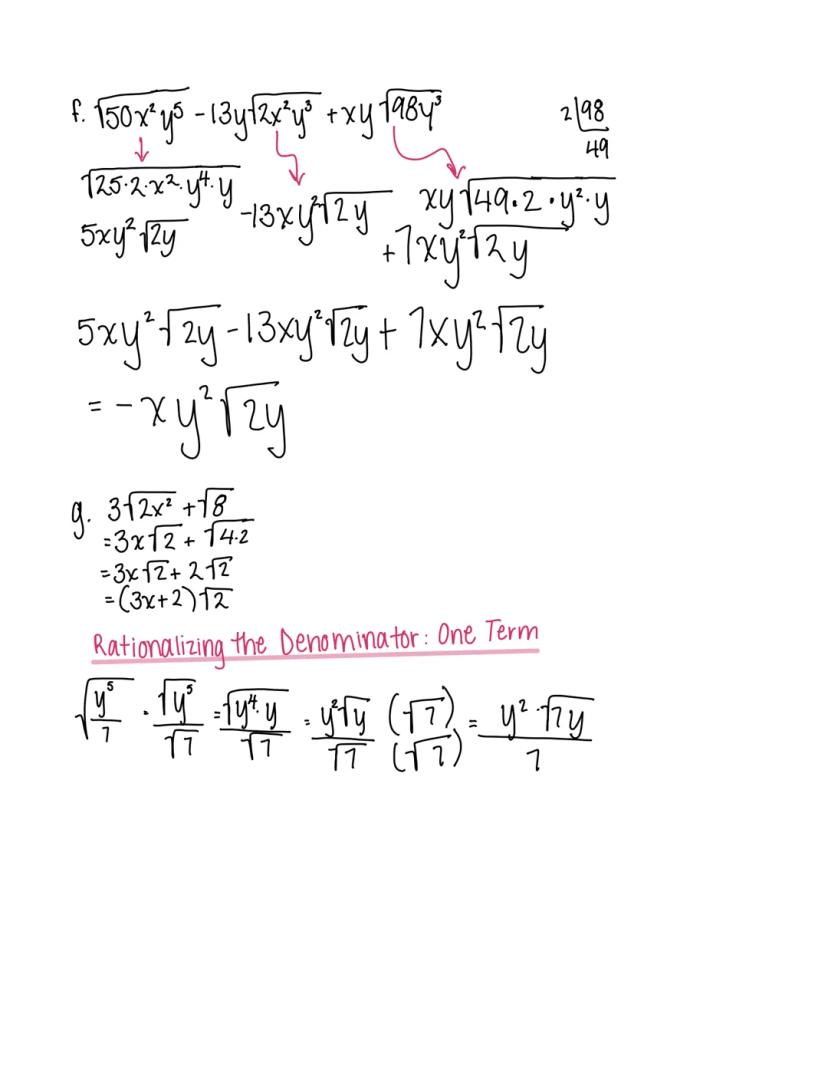 f. √50x²y⁵ - 13y√2x²y³ + xy√98y³ 2|98
49
√25·2·x²·y⁴·y -13xy²√2y xy√49·2·y²·y
5xy²√2y +7xy²√2y
5xy²√2y - 13xy²√2y + 7xy²√2y
= -xy²√2y
g. 3√2x² + √8
=3x√2 + √4·2
=3x√2 + 2√2
=(3x+2)√2
Rationalizing the Denominator: One Term
√(y⁵/7) · √y⁵/√7 = √y⁴·y/√7 = y²√y/√7 (√7)/(√7) = y²·√7y/7